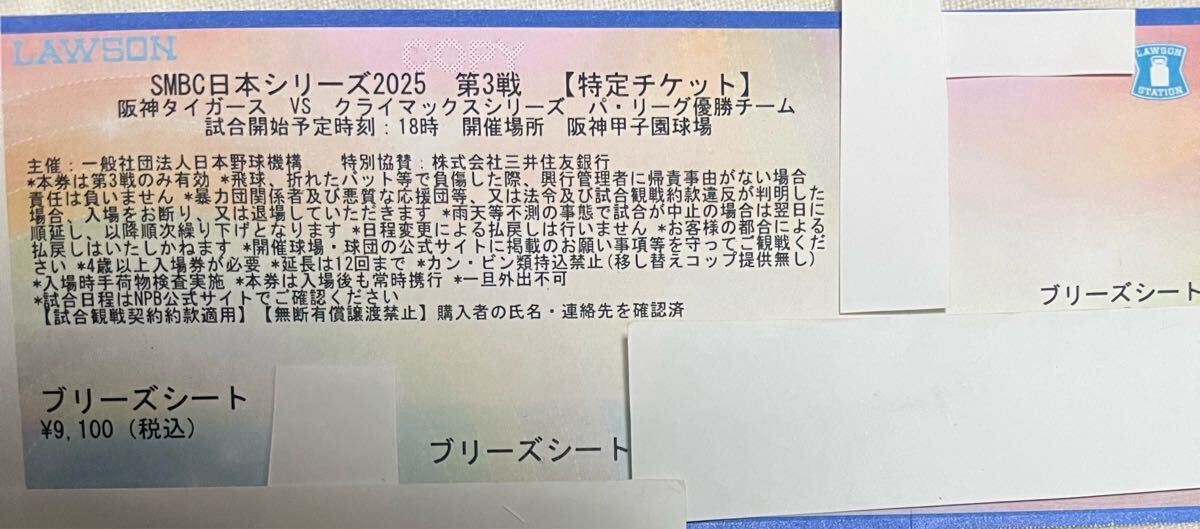 LAWSON
COPY
SMBC日本シリーズ2025 第3戦 【特定チケット】
阪神タイガース VS クライマックスシリーズ パ・リーグ優勝チーム
試合開始予定時刻：18時 開催場所 阪神甲子園球場
主催：一般社団法人日本野球機構 特別協賛：株式会社三井住友銀行
*本券は第3戦のみ有効 *飛球、折れたバット等で負傷した際、興行管理者に帰責事由がない場合
責任は負いません *暴力団関係者及び悪質な応援団等、又は法令及び試合観戦約款違反が判明した
場合、入場をお断り、又は退場していただきます *雨天等不測の事態で試合が中止の場合は翌日に
順延し、以降順次繰り下げとなります *日程変更による払戻しは行いません *お客様の都合による
払戻しはいたしかねます *開催球場・球団の公式サイトに掲載のお願い事項等を守ってご観戦くだ
さい *4歳以上入場券が必要 *延長は12回まで *カン・ビン類持込禁止(移し替えコップ提供無し)
*入場時手荷物検査実施 *本券は入場後も常時携行 *一旦外出不可
*試合日程はNPB公式サイトでご確認ください
【試合観戦契約約款適用】【無断有償譲渡禁止】購入者の氏名・連絡先を確認済
ブリーズシート
¥9,100（税込）
ブリーズシート
LAWSON
STATION
ブリーズシート